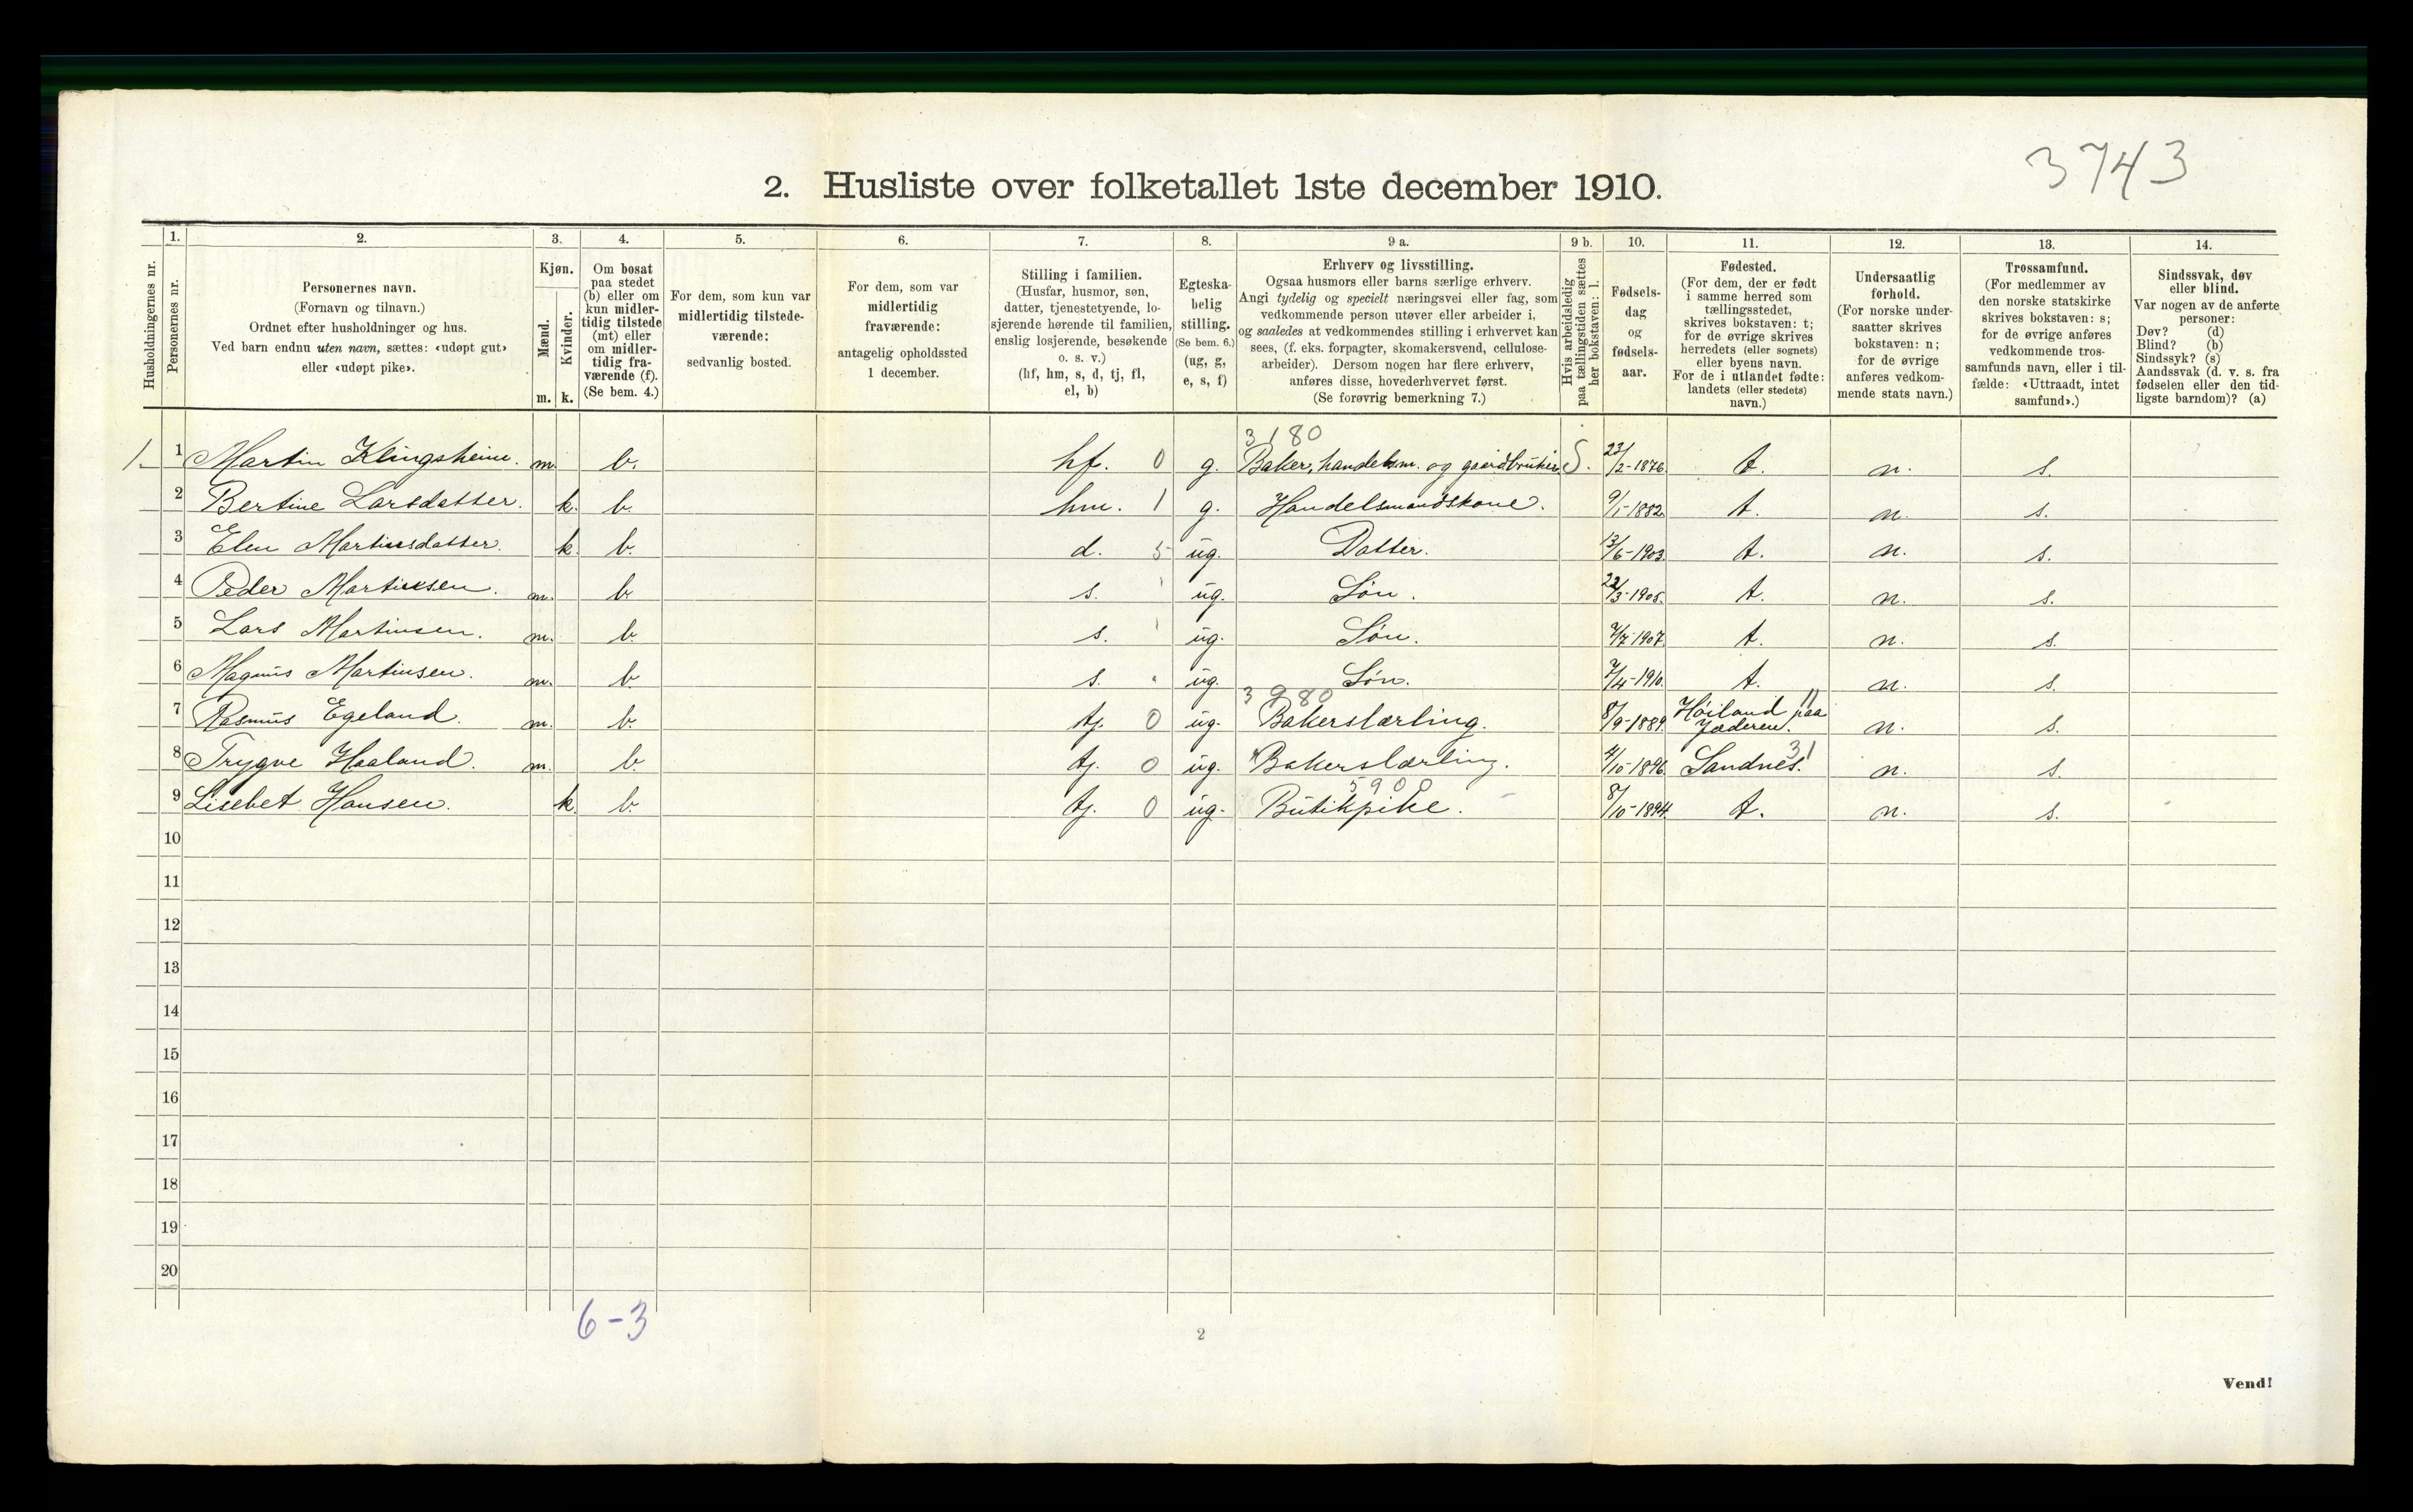 3743
2. Husliste over folketallet 1ste december 1910.
Husholdningernes nr.
1. Personernes nr.
2.
Personernes navn.
(Fornavn og tilnavn.)
Ordnet efter husholdninger og hus.
Ved barn endnu uten navn, sættes: «udøpt gut»
eller «udøpt pike».
3.
Kjøn.
Mænd. Kvinder.
m. k.
4.
Om bosat
paa stedet
(b) eller om
kun midler-
tidig tilstede
(mt) eller
om midler-
tidig fra-
værende (f).
(Se bem. 4.)
5.
For dem, som kun var
midlertidig tilstede-
værende:
sedvanlig bosted.
6.
For dem, som var
midlertidig
fraværende:
antagelig opholdssted
1 december.
7.
Stilling i familien.
(Husfar, husmor, søn,
datter, tjenestetyende, lo-
sjerende hørende til familien,
enslig losjerende, besøkende
o. s. v.)
(hf, hm, s, d, tj, fl,
el, b)
8.
Egteska-
belig
stilling.
(Se bem. 6.)
(ug, g,
e, s, f)
9 a.
Erhverv og livsstilling.
Ogsaa husmors eller barns særlige erhverv.
Angi tydelig og specielt næringsvei eller fag, som
vedkommende person utøver eller arbeider i,
og saaledes at vedkommendes stilling i erhvervet kan
sees, (f. eks. forpagter, skomakersvend, cellulose-
arbeider). Dersom nogen har flere erhverv,
anføres disse, hovederhvervet først.
(Se forøvrig bemerkning 7.)
9 b.
Hvis arbeidsledig
paa tællingstiden sættes
her bokstaven: l.
10.
Fødsels-
dag
og
fødsels-
aar.
11.
Fødested.
(For dem, der er født
i samme herred som
tællingsstedet,
skrives bokstaven: t;
for de øvrige skrives
herredets (eller sognets)
eller byens navn.
For de i utlandet fødte:
landets (eller stedets)
navn.)
12.
Undersaatlig
forhold.
(For norske under-
saatter skrives
bokstaven: n;
for de øvrige
anføres vedkom-
mende stats navn.)
13.
Trossamfund.
(For medlemmer av
den norske statskirke
skrives bokstaven: s;
for de øvrige anføres
vedkommende tros-
samfunds navn, eller i til-
fælde: «Uttraadt, intet
samfund».)
14.
Sindssvak, døv
eller blind.
Var nogen av de anførte
personer:
Døv? (d)
Blind? (b)
Sindssyk? (s)
Aandssvak (d. v. s. fra
fødselen eller den tid-
ligste barndom)? (a)
3180
1. 1 Martin Klingsheim. m. b. hf. 0 g. Baker, handelsm. og gaardbruker S. 23/2-1876. t. n. s.
2 Bertine Larsdatter. k. b. hm. 1 g. Handelsmandskone. 9/1-1882. t. n. s.
3 Elen Martinsdatter. k. b. d. 5 ug. Datter. 13/6-1903. t. n. s.
4 Peder Martinsen. m. b. s. ug. Søn. 22/3-1905. t. n. s.
5 Lars Martinsen. m. b. s. ug. Søn. 1907. t. n. s.
6 Magnus Martinsen. m. b. s. ug. Søn. 7/4-1910. t. n. s.
3980
7 Rasmus Egeland. m. b. tj. 0 ug. Bakerslærling. 8/9-1889. Høiland paa Jæderen. 11 n. s.
8 Trygve Haaland. m. b. tj. 0 ug. Bakerslærling. 4/10-1896. Sandnes. 31 n. s.
5900
9 Lisebet Hansen. k. b. tj. 0 ug. Butikpike. 8/10-1894. t. n. s.
10
11
12
13
14
15
16
17
18
19
20
6-3
2
Vend!